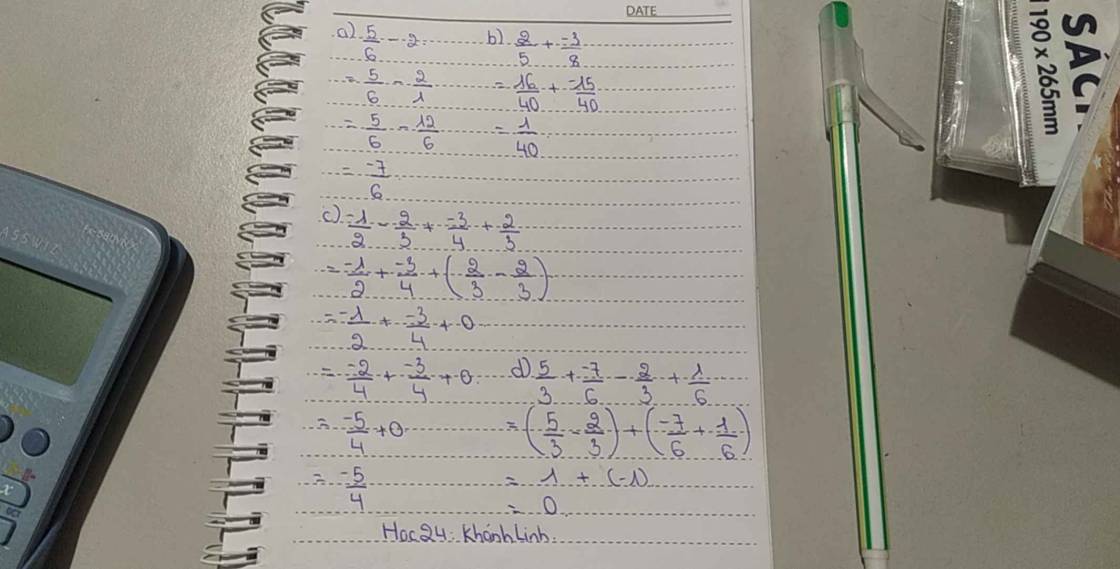 DATE
a) 5/6 - 2
= 5/6 - 2/1
= 5/6 - 12/6
= -7/6
b) 2/5 + -3/8
= 16/40 + -15/40
= 1/40
c) -1/2 - 2/3 + -3/4 + 2/3
= -1/2 + -3/4 + (2/3 - 2/3)
= -1/2 + -3/4 + 0
= -2/4 + -3/4 + 0
= -5/4 + 0
= -5/4
d) 5/3 + -7/6 - 2/3 + 1/6
= (5/3 - 2/3) + (-7/6 + 1/6)
= 1 + (-1)
= 0
Hoc24: Khánh Linh.
SÁCH
190 x 265mm